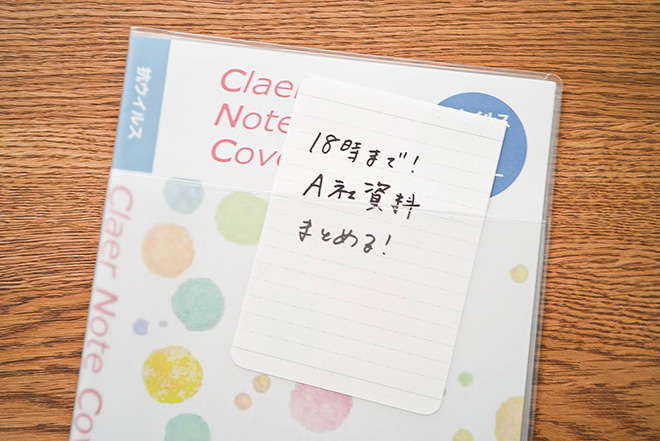 抗ウイルス
Claer
Note
Cove
18時まで!
A社資料
まとめる!
Claer Note Cov